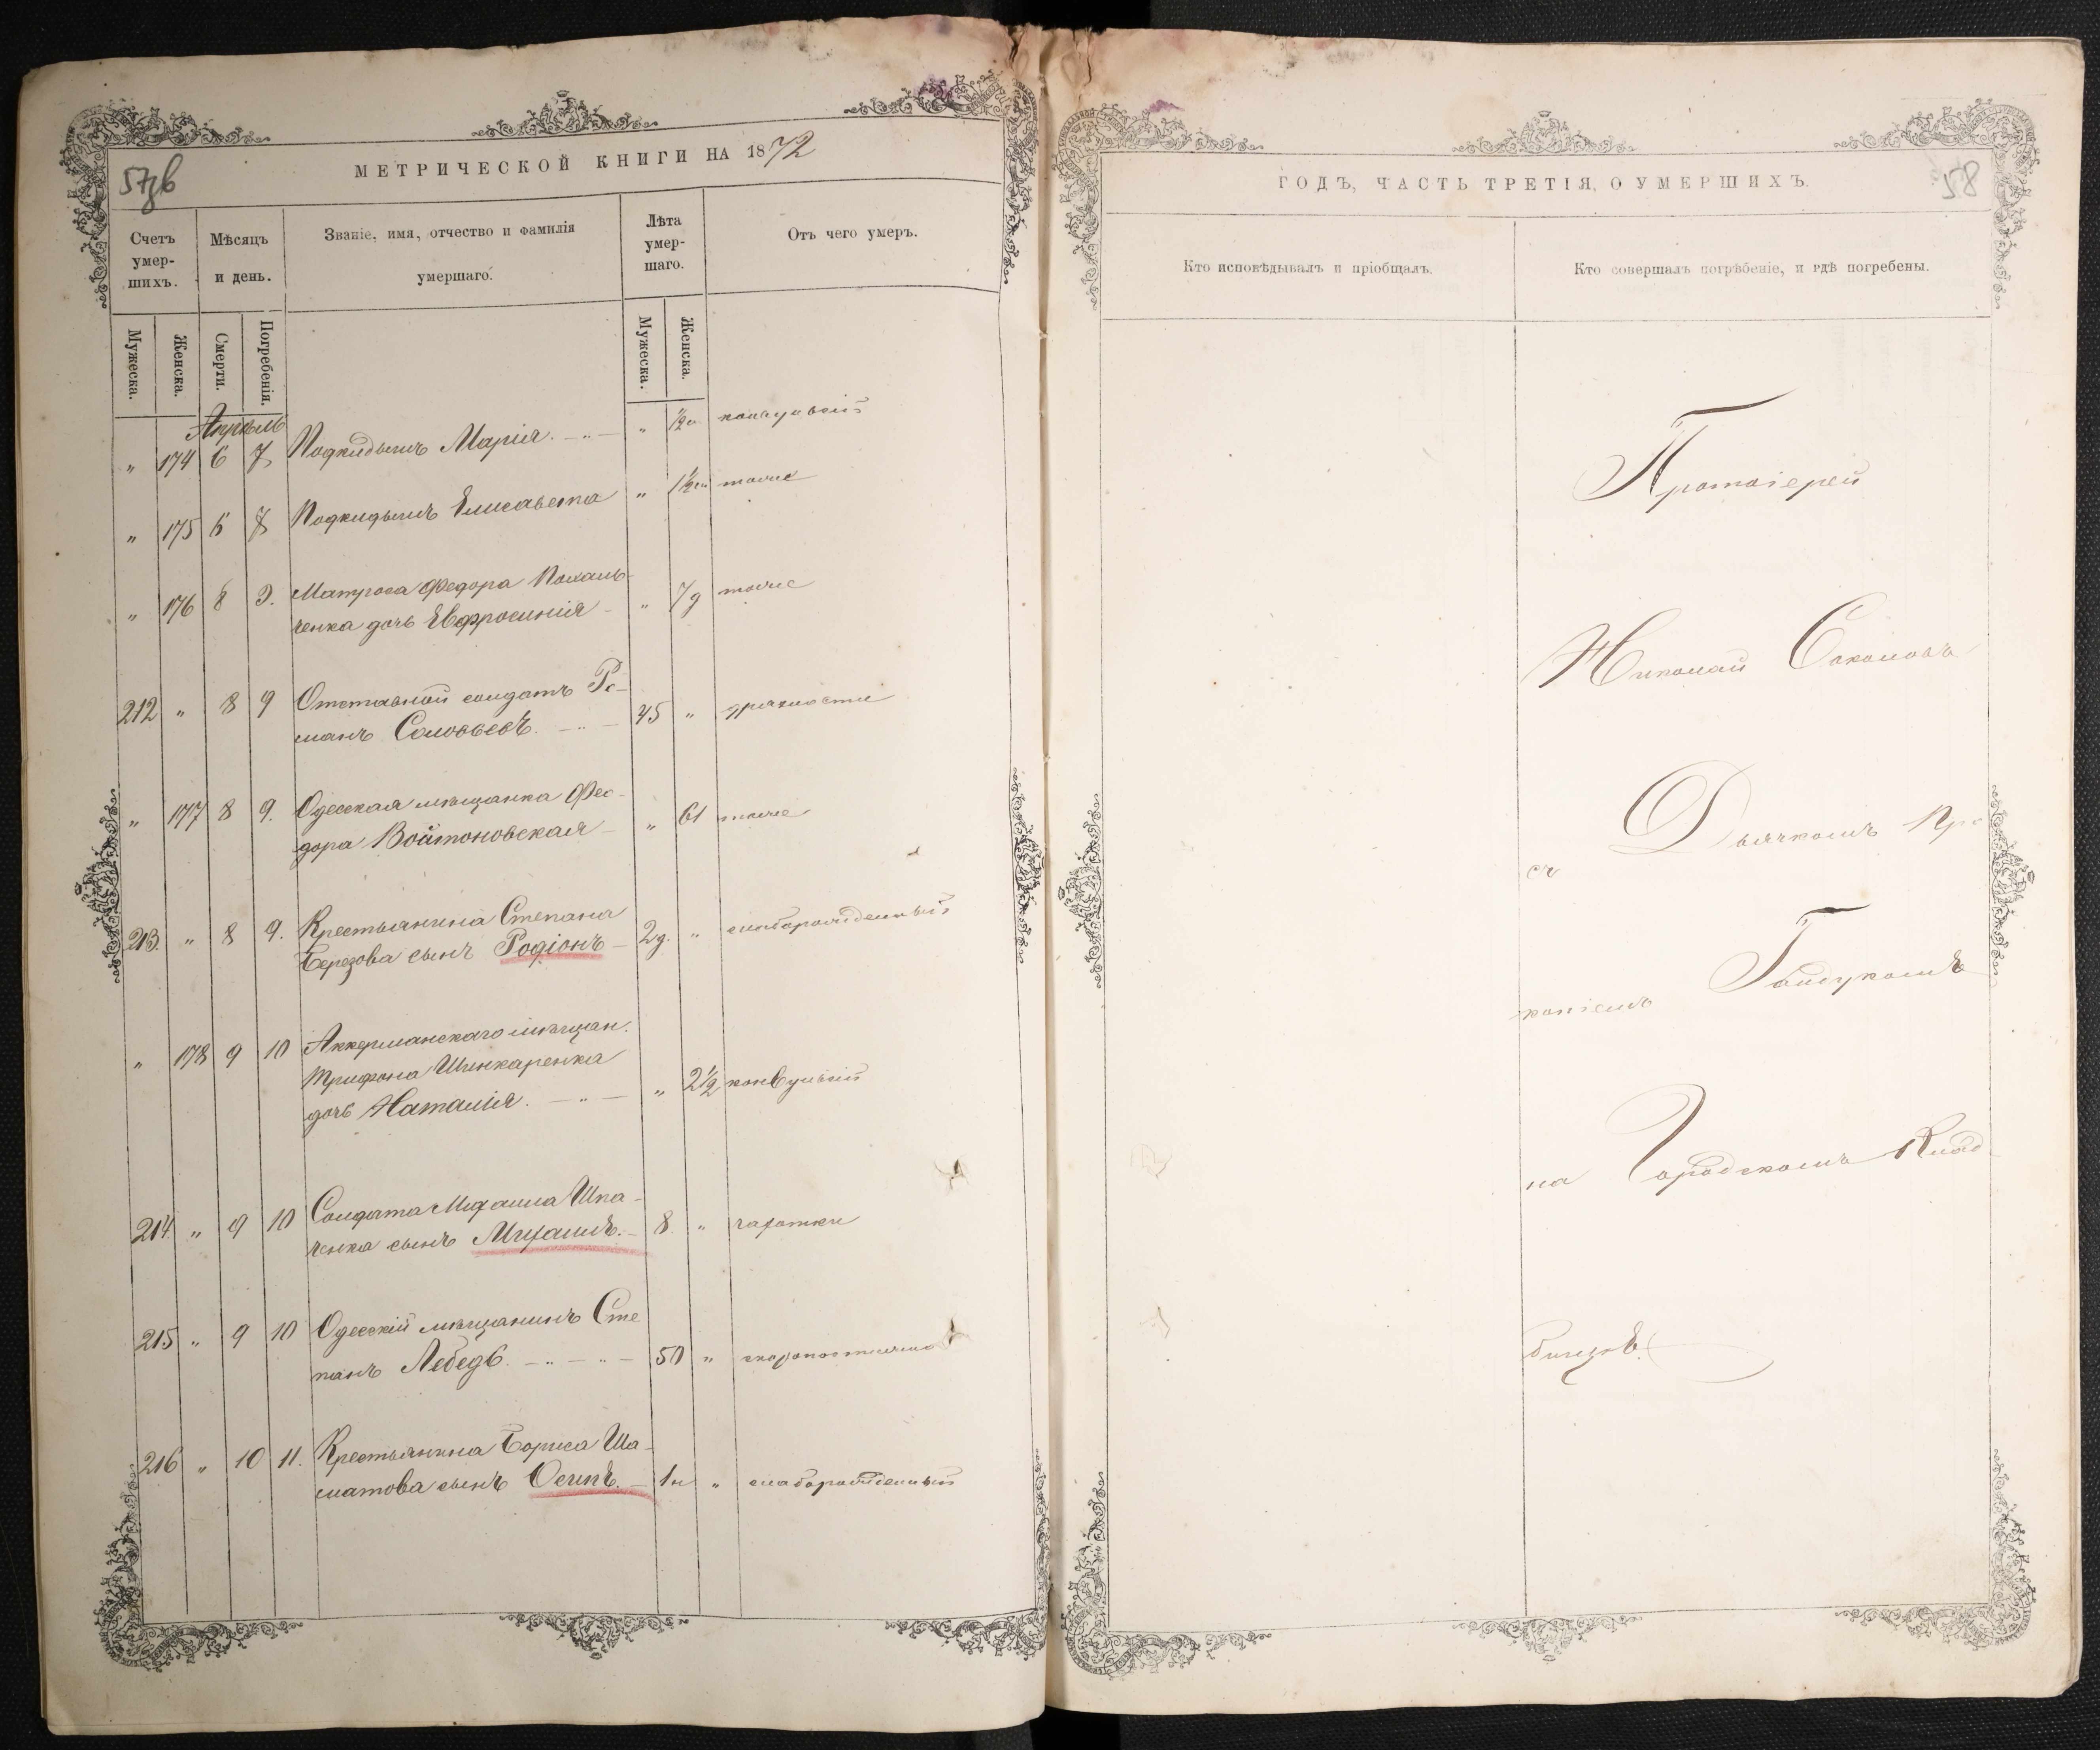 57зв
МЕТРИЧЕСКОЙ КНИГИ НА 1872
Счетъ умер-шихъ.
Мѣсяцъ и день.
Званіе, имя, отчество и фамилія умершаго.
Лѣта умер-шаго.
Отъ чего умеръ.
Мужеска.
Женска.
Смерти.
Погребенія.
Мужеска.
Женска.
Апрѣль
„ 174 6 7 Подкидышъ Марія. „
„ 175 6 7 Подкидышъ Елисавета „ тоже
„ 176 8 9. Матроса Федора
ченка дочь Евфросинія „ 7д тоже
212 „ 8 9 Отставной солдатъ Ро-
манъ Соловьевъ. 45 „ дряхлости
„ 177 8 9. Одесская мѣщанка Фео-
дора Войтоновская „ 61 тоже
213. „ 8 9. Крестьянина Степана
Березова сынъ Родіонъ 2д. „ слаборожденный
„ 178 9 10 Аккерманскаго мѣщан.
Трифона Шинкаренка
дочь Наталія. „ 2½ конвульсій
214. „ 9 10 Солдата Михаила Шпа-
ченка сынъ Михаилъ. 8. „ чахотки
215 „ 9 10 Одесскій мѣщанинъ Сте
панъ Лебедь. 50 „ скоропостижно
216 „ 10 11. Крестьянина Бориса Ша-
матова сынъ Осипъ. 1н „ слаборожденный
ГОДЪ, ЧАСТЬ ТРЕТІЯ, О УМЕРШИХЪ.
58
Кто исповѣдывалъ и пріобщалъ.
Кто совершалъ погрѣбеніе, и гдѣ погребены.
Протоіерей
Николай Соколовъ
съ Дьячкомъ Про
копіемъ Гайдукомъ
на Городскомъ Клад-
бищѣ.